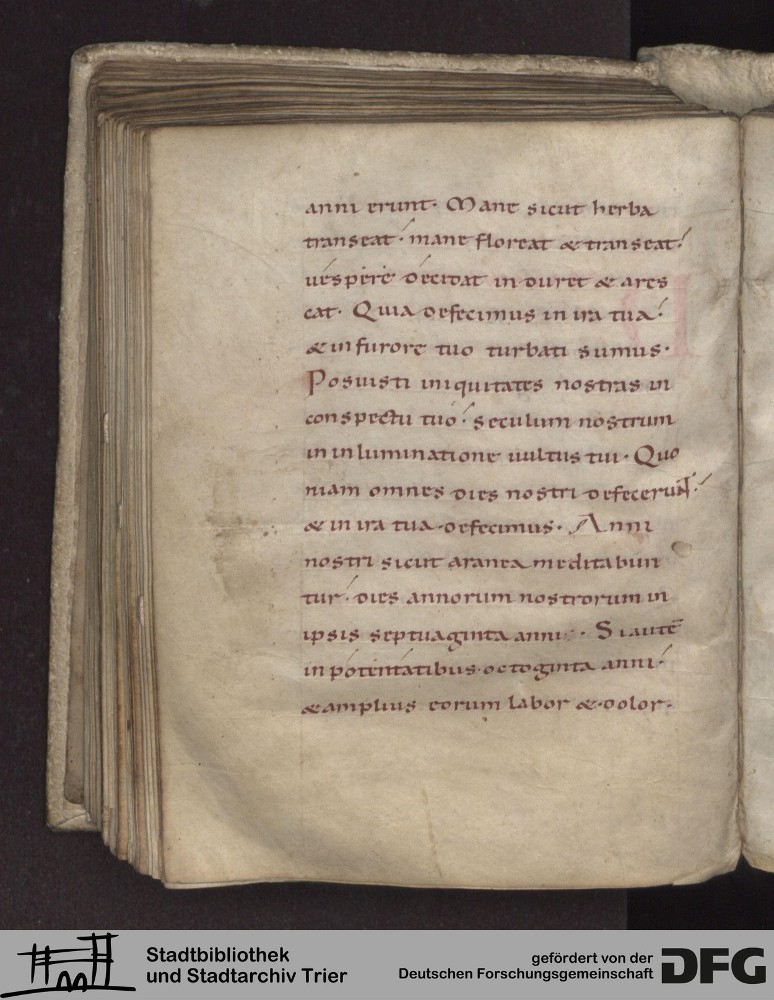 anni erunt· Mane sicut herba
transeat· mane floreat & transeat·
uespere decidat induret & ares
cat· Quia defecimus in ira tua·
& in furore tuo turbati sumus·
Posuisti iniquitates nostras in
conspectu tuo· seculum nostrum
in inluminatione uultus tui· Quo
niam omnes dies nostri defecerunt·
& in ira tua defecimus· Anni
nostri sicut aranea meditabun
tur· dies annorum nostrorum in
ipsis septuaginta anni· Si autē
in potentatibus octoginta anni·
& amplius eorum labor & dolor·
Stadtbibliothek
und Stadtarchiv Trier
gefördert von der
Deutschen Forschungsgemeinschaft
DFG